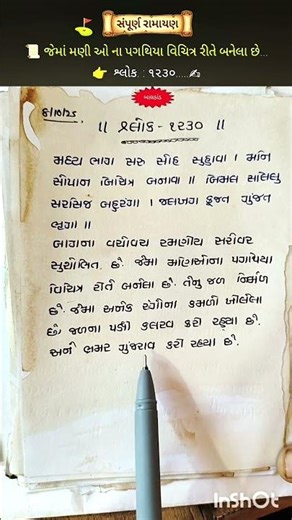 સંપૂર્ણ રામાયણ
જેમાં મણી ઓ ના પગથિયા વિચિત્ર રીતે બનેલા છે...
શ્લોક : ૧૨૩૦.....
બાલકાંડ
8/10/25
॥ શ્લોક - ૧૨૩૦ ॥
મધ્ય ભાગ સરુ સોહ સુહાવા । મનિ
સોપાન બિચિત્ર બનાવા ॥ બિમલ સલિલુ
સરસિજ બહુરંગા । જલખગ કૂજત ગુંજત
ભૃંગા ॥
બાગના વચોવચ રમણીય સરોવર
સુશોભિત છે. જેમાં મણિઓના પગથિયા
વિચિત્ર રીતે બનેલા છે. તેનું જળ નિર્મળ
છે. જેમાં અનેક રંગોના કમળો ખીલેલા
છે. જળના પક્ષી કલરવ કરી રહ્યા છે.
અને ભ્રમર ગુંજારવ કરી રહ્યા છે.
InShOt